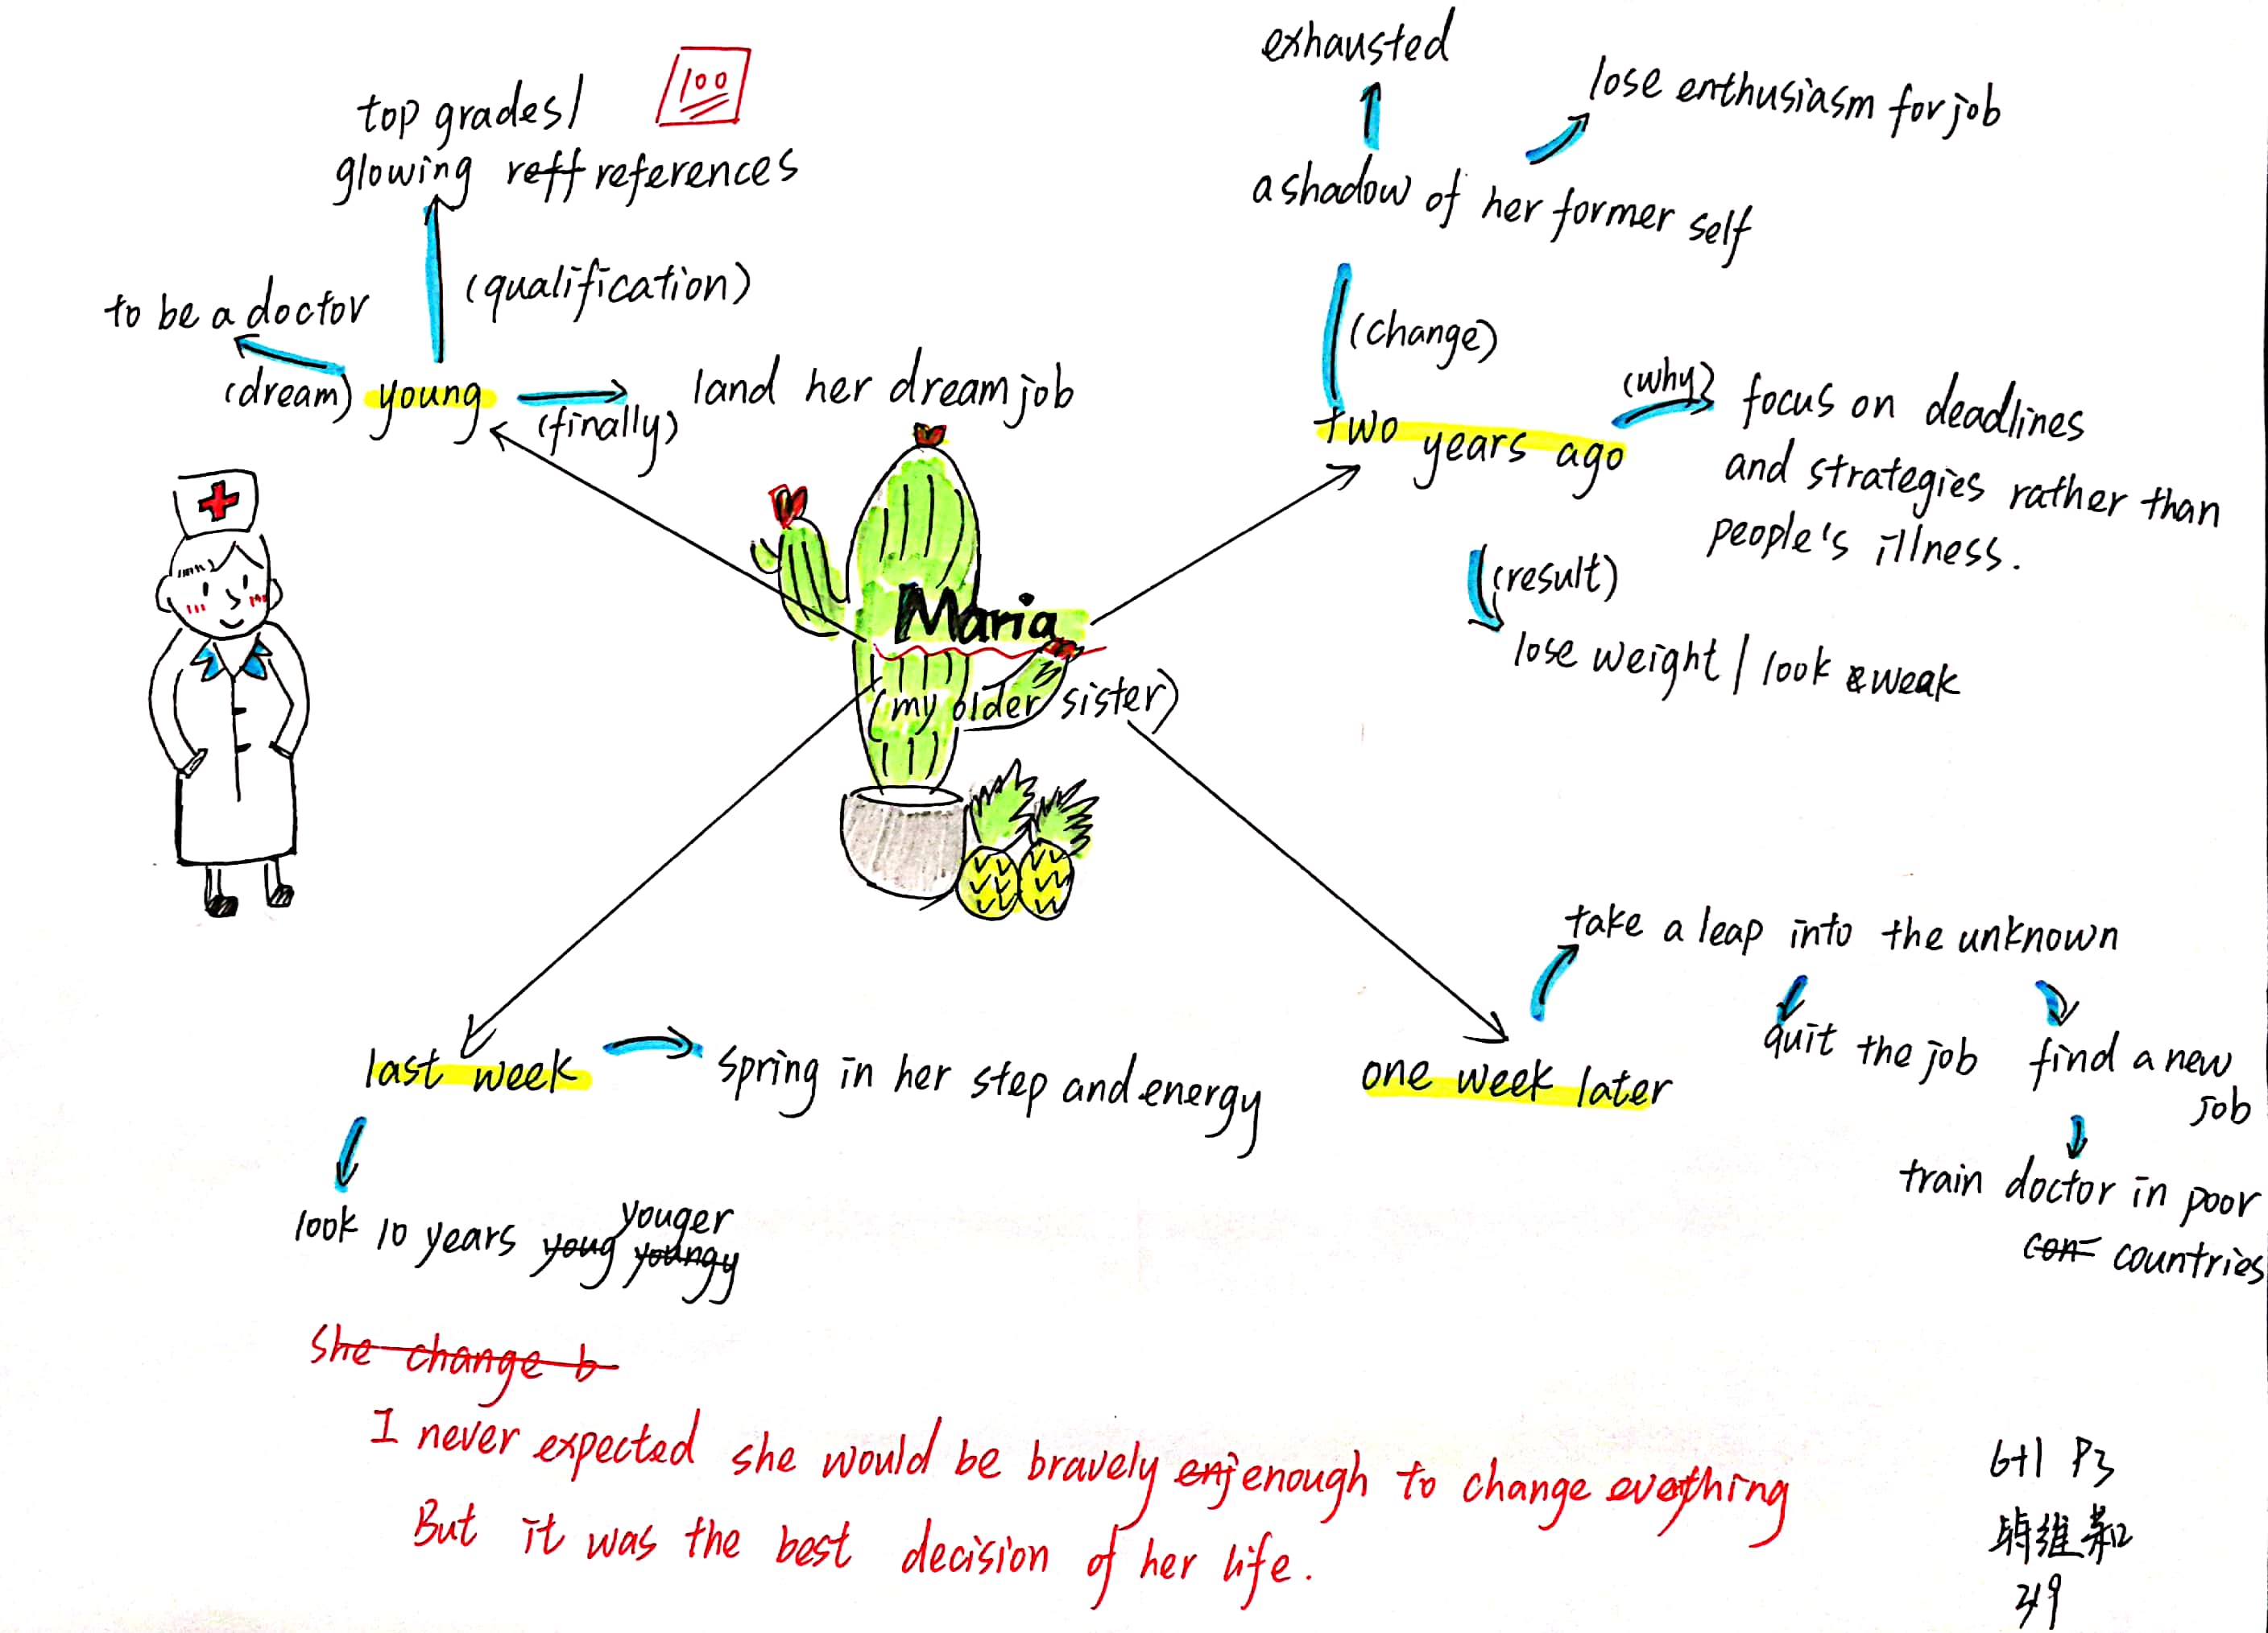 top grades/
glowing reff references
100
(qualification)
to be a doctor
(dream)
young
(finally)
land her dream job
exhausted
lose enthusiasm for job
a shadow of her former self
(change)
two years ago
(why)
focus on deadlines
and strategies rather than
people's illness.
(result)
lose weight / look weak
Maria
(my older sister)
last week
spring in her step and energy
look 10 years youg youngy
youger
one week later
take a leap into the unknown
quit the job
find a new
job
train doctor in poor
con countries
She change b
I never expected she would be bravely enj enough to change
But it was the best decision of her life.
6+1 P3
319